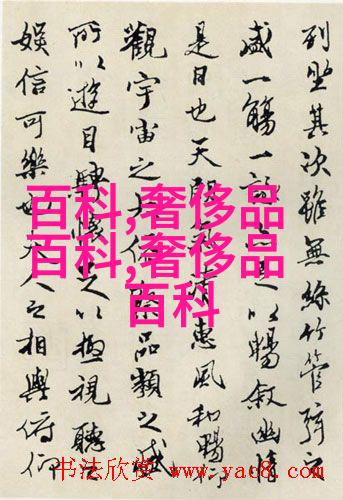 列坐其次雖無絲竹管弦之
盛一觴一詠亦足以暢敘幽情
是日也天朗氣清惠風和暢仰
觀宇宙之大俯察品類之盛
所以遊目騁懷足以極視聽之
娛信可樂也夫人之相與俯仰
百科,奢侈品
百科,奢侈品
百科
书法欣赏 www.yac8.com